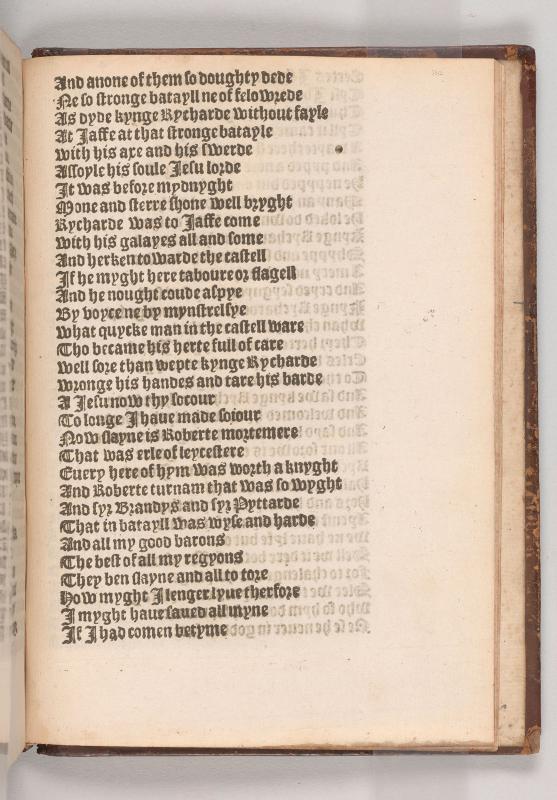 And anone of them so doughty dede
Ne so stronge batayll ne of felowrede
As dyde kynge Rycharde without fayle
At Jaffe at that stronge batayle
with his axe and his swerde
Assoyle his soule Jesu lorde
It was before mydnyght
Mone and sterre shone well bryght
Rycharde was to Jaffe come
with his galayes all and some
And herken towarde the castell
If he myght here taboure or flagell
And he nought coude aspye
By voyce ne by mynstrelsye
what quycke man in the castell ware
Tho became his herte full of care
well sore than wepte kynge Rycharde
wronge his handes and tare his barde
A Jesu now thy socour
To longe I haue made soiour
Now slayne is Roberte mortemere
That was erle of leycestere
Euery here of hym was worth a knyght
And Roberte turnam that was so wyght
And syr Brandys and syr Pyttarde
That in batayll was wyse and harde
And all my good barons
The best of all my regyons
They ben slayne and all to tore
How myght I lenger lyue therfore
I myght haue saued all myne
If I had comen betyme